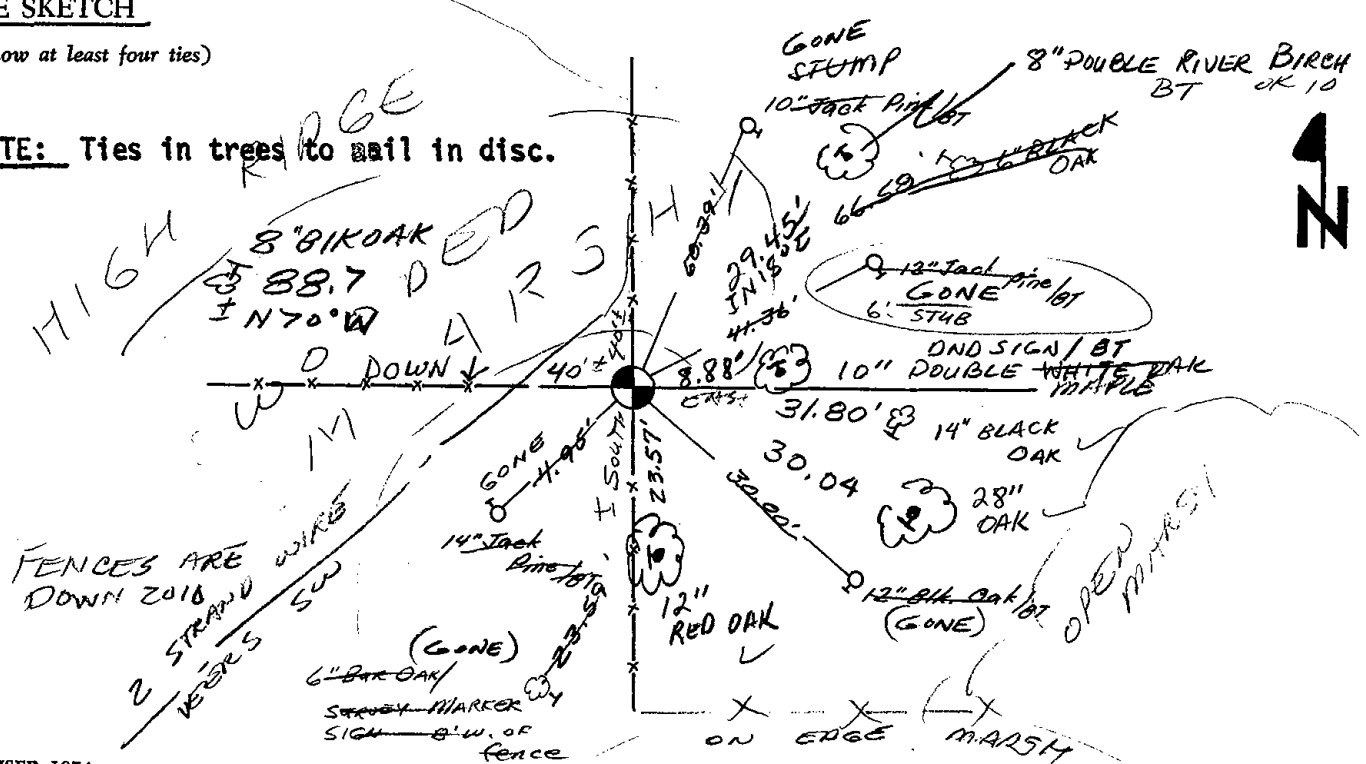 E SKETCH
ow at least four ties)
TE: Ties in trees to nail in disc.
HIGH RIDGE
WOODED
MARSH
8" BLK OAK
88.7
± N70°W
DOWN
40'±
40'±
GONE
STUMP
10" Jack Pine/BT
8" DOUBLE RIVER BIRCH
BT OK 10
6" BLACK
OAK
N
29.45'
41.36'
12" Jack Pine/BT
GONE
6' STUB
DND SIGN/BT
8.88'/
EAST
10" DOUBLE WHITE OAK
MAPLE
31.80'
14" BLACK
OAK
30.04
28"
OAK
30.00'
12" Blk. Oak/BT
(GONE)
OPEN
MARSH
GONE
4.95'
14" Jack
Pine/BT
± SOUTH
23.57'
12"
RED OAK
23.59'
(GONE)
6" BUR OAK/
SURVEY MARKER
SIGN 8' W. OF
fence
FENCES ARE
DOWN 2010
2 STRAND WIRE
VEERS SW
ON EDGE MARSH